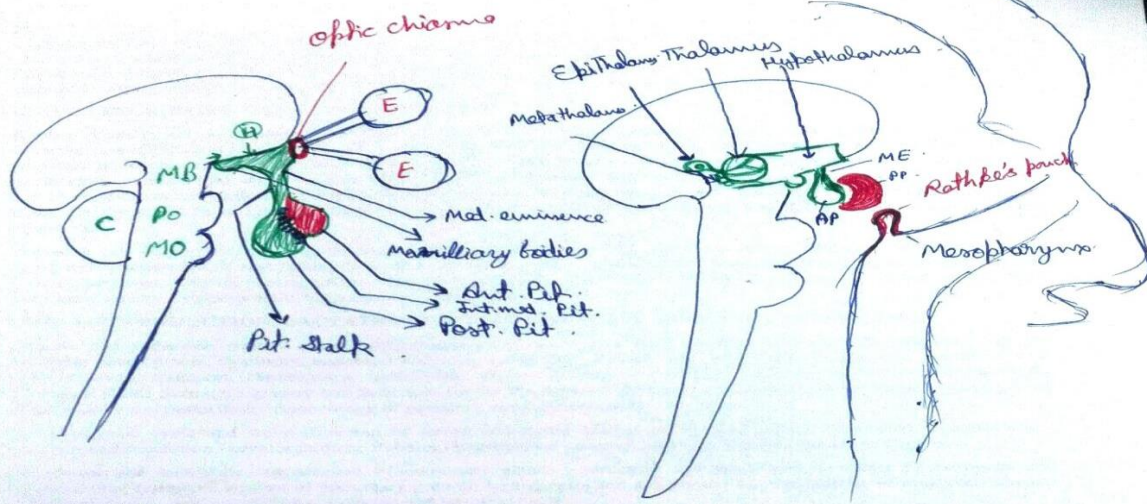 optic chiasma
E
H
E
MB
C
Po
MO
Med. eminence
Mamilliary bodies
Ant. Pit.
Intmed. Pit.
Post. Pit
Pit. Stalk
EpiThalamus Thalamus
Hypothalamus
Metathalamus
ME
PP
AP
Rathke's pouch
Mesopharynx